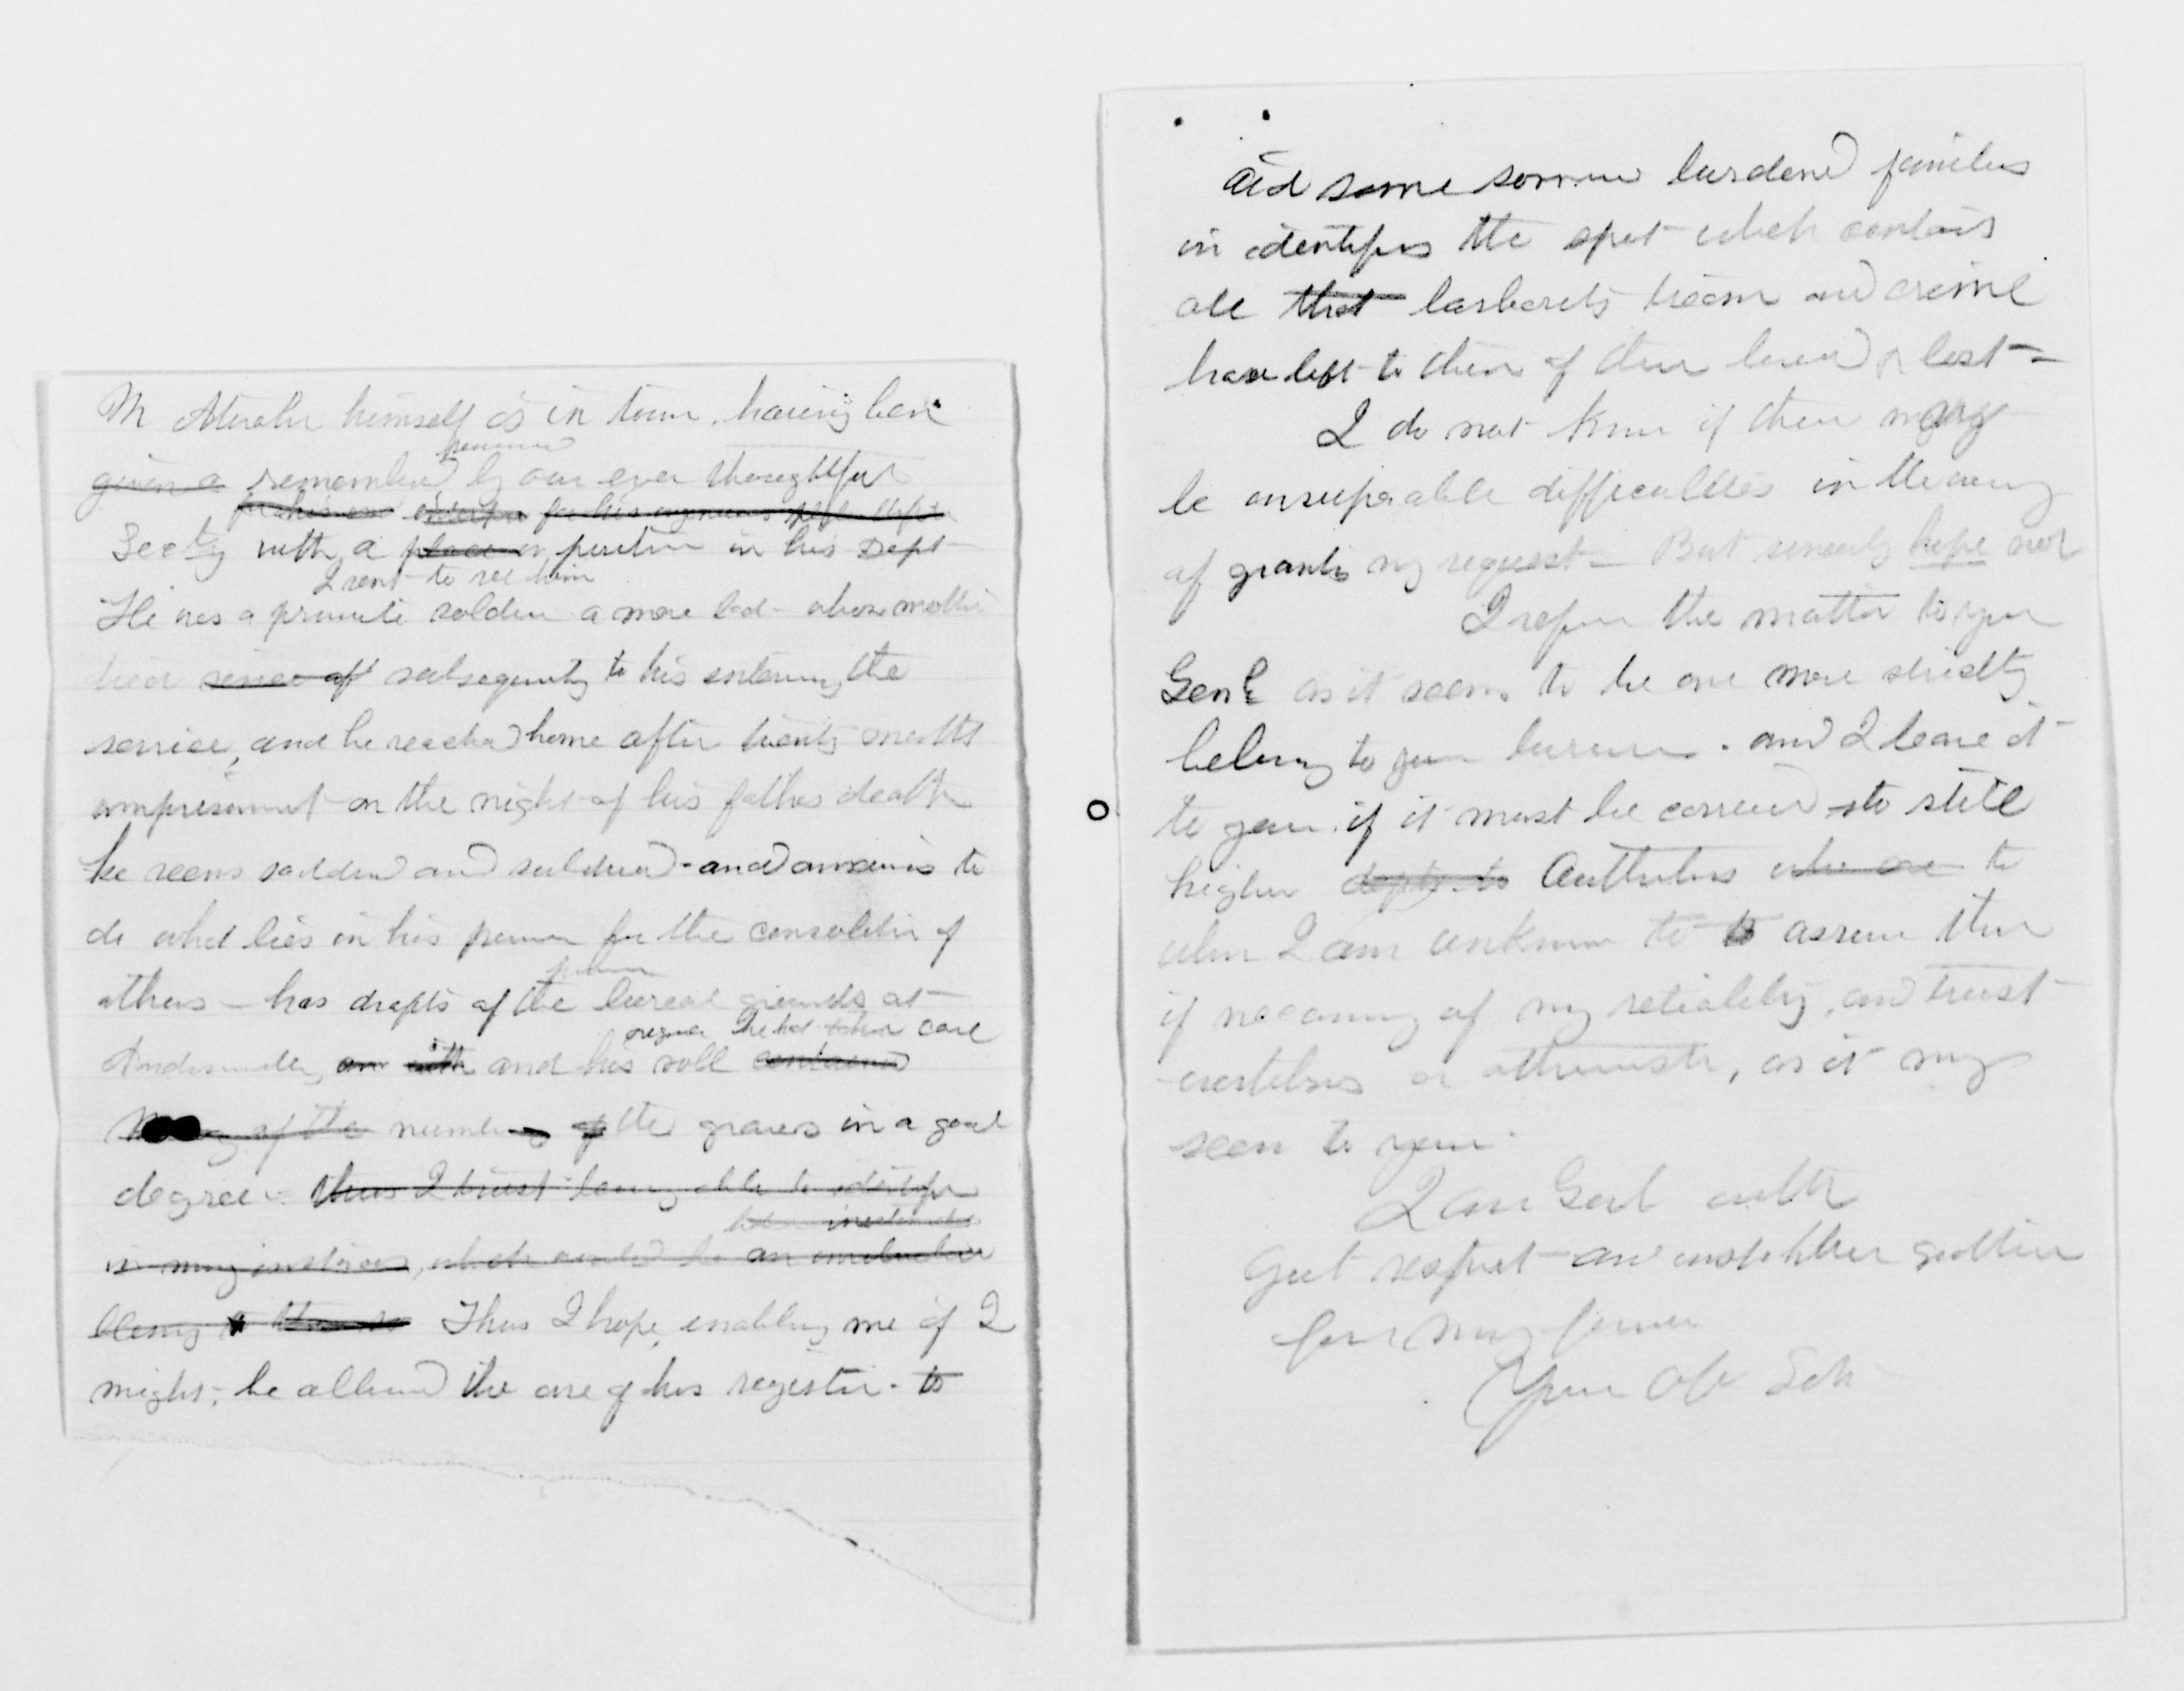 M Atwater himself is in town, having been
given a remembered by our ever thoughtful
for his
Secty with a place or position in his Dept
I sent to see him
He was a private soldier a mere lad - whose mother
died since of subsequently to his entering the
service, and he reached home after twenty months
imprisonment on the night of his fathers death
he seems saddened and subdued - and anxious to
do what lies in his power for the consolation of
others - has drafts of the burial grounds at
Andersonville, and his roll contained
of the numbers of the graves in a great
degree - thus I trust being able to identify
in many instances, which would be an invaluable
blessing to Thus I hope, enabling me if I
might, be allowed the use of his register - to
aid some sorrow burdened families
in identifying the spot which contains
all that barbarity treason and crime
have left to them of their loved & lost -
I do not know if there may
be insuperable difficulties in the way
of granting my request - But sincerely hope not
I refer the matter to you
Genl as it seems to be one more strictly
belonging to your bureau. and I leave it
to you. if it must be carried to still
higher depts to Authorities who are to
whom I am unknown to to assure them
if necessary of my reliability, and trust
worthiness or otherwise, as it may
seem to you.
I am Genl with
Great respect and gratitude
for many favors
Your Obt Svt